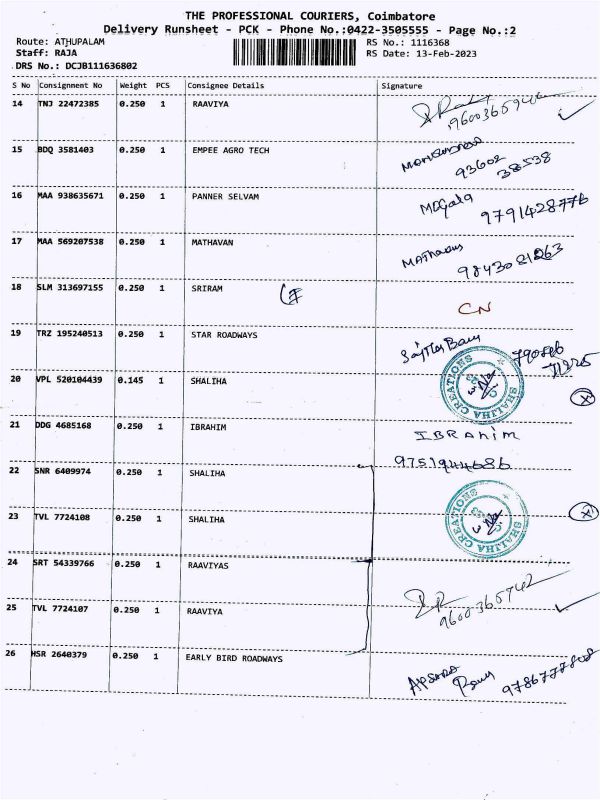 THE PROFESSIONAL COURIERS, Coimbatore
Delivery Runsheet - PCK - Phone No.:0422-3505555 - Page No.:2
Route: ATHUPALAM RS No.: 1116368
Staff: RAJA RS Date: 13-Feb-2023
DRS No.: DCJB111636802
S No Consignment No Weight PCS Consignee Details Signature
14 TNJ 22472385 0.250 1 RAAVIYA
9600365942
15 BDQ 3581403 0.250 1 EMPEE AGRO TECH
93602
38538
16 MAA 938635671 0.250 1 PANNER SELVAM Megala
9791428776
17 MAA 569207538 0.250 1 MATHAVAN Mathavan
9843021263
18 SLM 313697155 0.250 1 SRIRAM
CN
19 TRZ 195240513 0.250 1 STAR ROADWAYS
20 VPL 520104439 0.145 1 SHALIHA
SHALIHA CREATIONS
21 DDG 4685168 0.250 1 IBRAHIM IBRAHIM
9751944686
22 SNR 6409974 0.250 1 SHALIHA
23 TVL 7724108 0.250 1 SHALIHA
SHALIHA CREATIONS
24 SRT 54339766 0.250 1 RAAVIYAS
25 TVL 7724107 0.250 1 RAAVIYA
9600365942
26 HSR 2640379 0.250 1 EARLY BIRD ROADWAYS APSARA